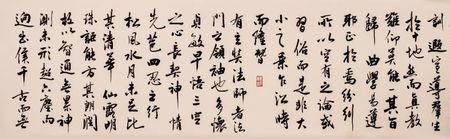 訓遐宣導群生
於十地然而真教
難仰莫能一其旨
歸曲學易遵
邪正於焉紛糾
所以空有之論或
習俗而是非大
小之乘乍沿時
而隆替
有玄奘法師者法
門之領袖也幼懷
貞敏早悟三空
之心長契神情
先苞四忍之行
松風水月未足比
其清華仙露明
珠詎能方其朗潤
故以智通無累神
測未形超六塵而
迥出隻千古而無